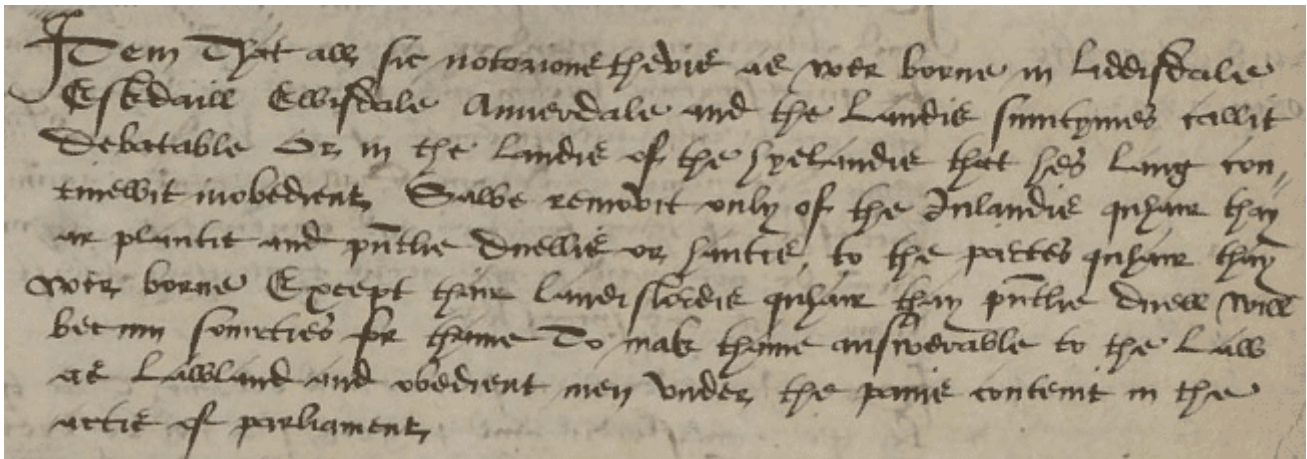 Item That all sic notorious thevis as wer borne in Liddisdale
Eskdaill Ewisdale Annerdale and the Landis sumtymes callit
Debatable Or in the landis of the hyelandis that hes lang con„
tinewit inobedient Salbe removit only of the Inlandis quhair thay
ar plantit and pntlie duellis or hantis, to the partes quhair thay
wer borne Except thair landislordis quhair thay pntlie duell will
becum souirties for thame To mak thame ansuerable to the Law
as Lawland and obedient men Vnder the panis contenit in the
actis of parliament